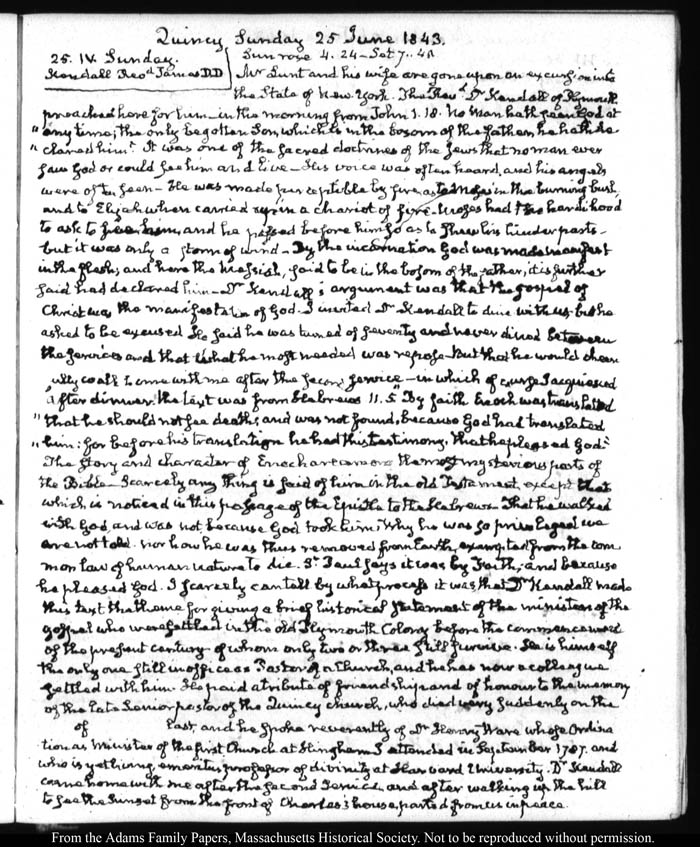 Quincy Sunday 25 June 1843.
25. IV. Sunday.
Kendall Revd James D.D
Sun rose 4. 24 - Set 7..40
Mr Lunt and his wife are gone upon an excursion into
the State of New-York. The Revd Dr Kendall of Plymouth
preached here for him - in the morning from John 1. 18. No man hath seen God at
" any time; the only begotten Son, which is in the bosom of the father, he hath de
" clared him." It was one of the sacred doctrines of the Jews that no man ever
saw God or could see him and live - His voice was often heard, and his angels
were often seen - He was made perceptible by fire, as to Moses in the burning bush
and to Elijah when carried up in a chariot of fire - Moses had the hardihood
to ask to see him, and he passed before him so as to shew his hinder parts -
but it was only a storm of wind - By the incarnation God was made manifest
in the flesh; and here the Messiah, said to be in the bosom of the father, it is further
said had declared him - Dr Kendall's argument was that the gospel of
Christ was the manifestation of God - I invited Dr Kendall to dine with us but he
asked to be excused He said he was turned of seventy and never dined between
the services and that what he most needed was repose - but that he would cheer
fully walk home with me after the second service - in which of course I acquiesced
After dinner the text was from Hebrews 11. 5 "By faith Enoch was translated
" that he should not see death; and was not found, because God had translated
" him: for before his translation he had this testimony, that he pleased God."
The story and character of Enoch are among the most mysterious parts of
the Bible - Scarcely any thing is said of him in the old Testament, except that
which is noticed in this passage of the Epistle to the Hebrews - That he walked
with God, and was not because God took him; Why he was so privileged we
are not told. nor how he was thus removed from Earth, exempted from the com
mon law of human nature to die. St Paul says it was by Faith, and because
he pleased God. I scarcely can tell by what process it was that Dr Kendall made
this text the theme for giving a brief historical statement of the ministers of the
gospel who were settled in the old Plymouth Colony before the commencement
of the present century of whom only two or three still survive. He is himself
the only one still in office as Pastor of a Church, and he has now a colleague
settled with him. He paid a tribute of friendship and of honour to the memory
of the late Senior pastor of the Quincy church, who died very suddenly on the
of last, and he spoke reverently of Dr Henry Ware whose Ordina
tion as Minister of the first Church at Hingham I attended in September 1787. and
who is yet living, emeritus professor of divinity at Harvard University. Dr Kendall
came home with me after the second Service, and after walking up the hill
to see the Sunset from the front of Charles's house, parted from us in peace.
From the Adams Family Papers, Massachusetts Historical Society. Not to be reproduced without permission.